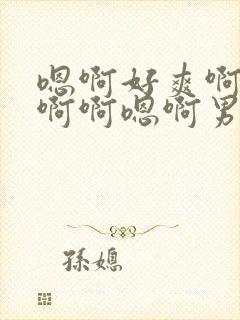 嗯啊好爽啊
啊啊嗯啊男
孫媳